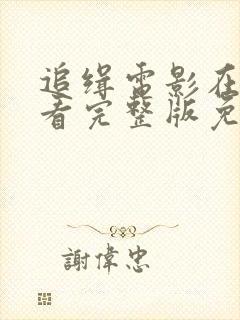 追缉电影在
看完整版免
謝偉忠